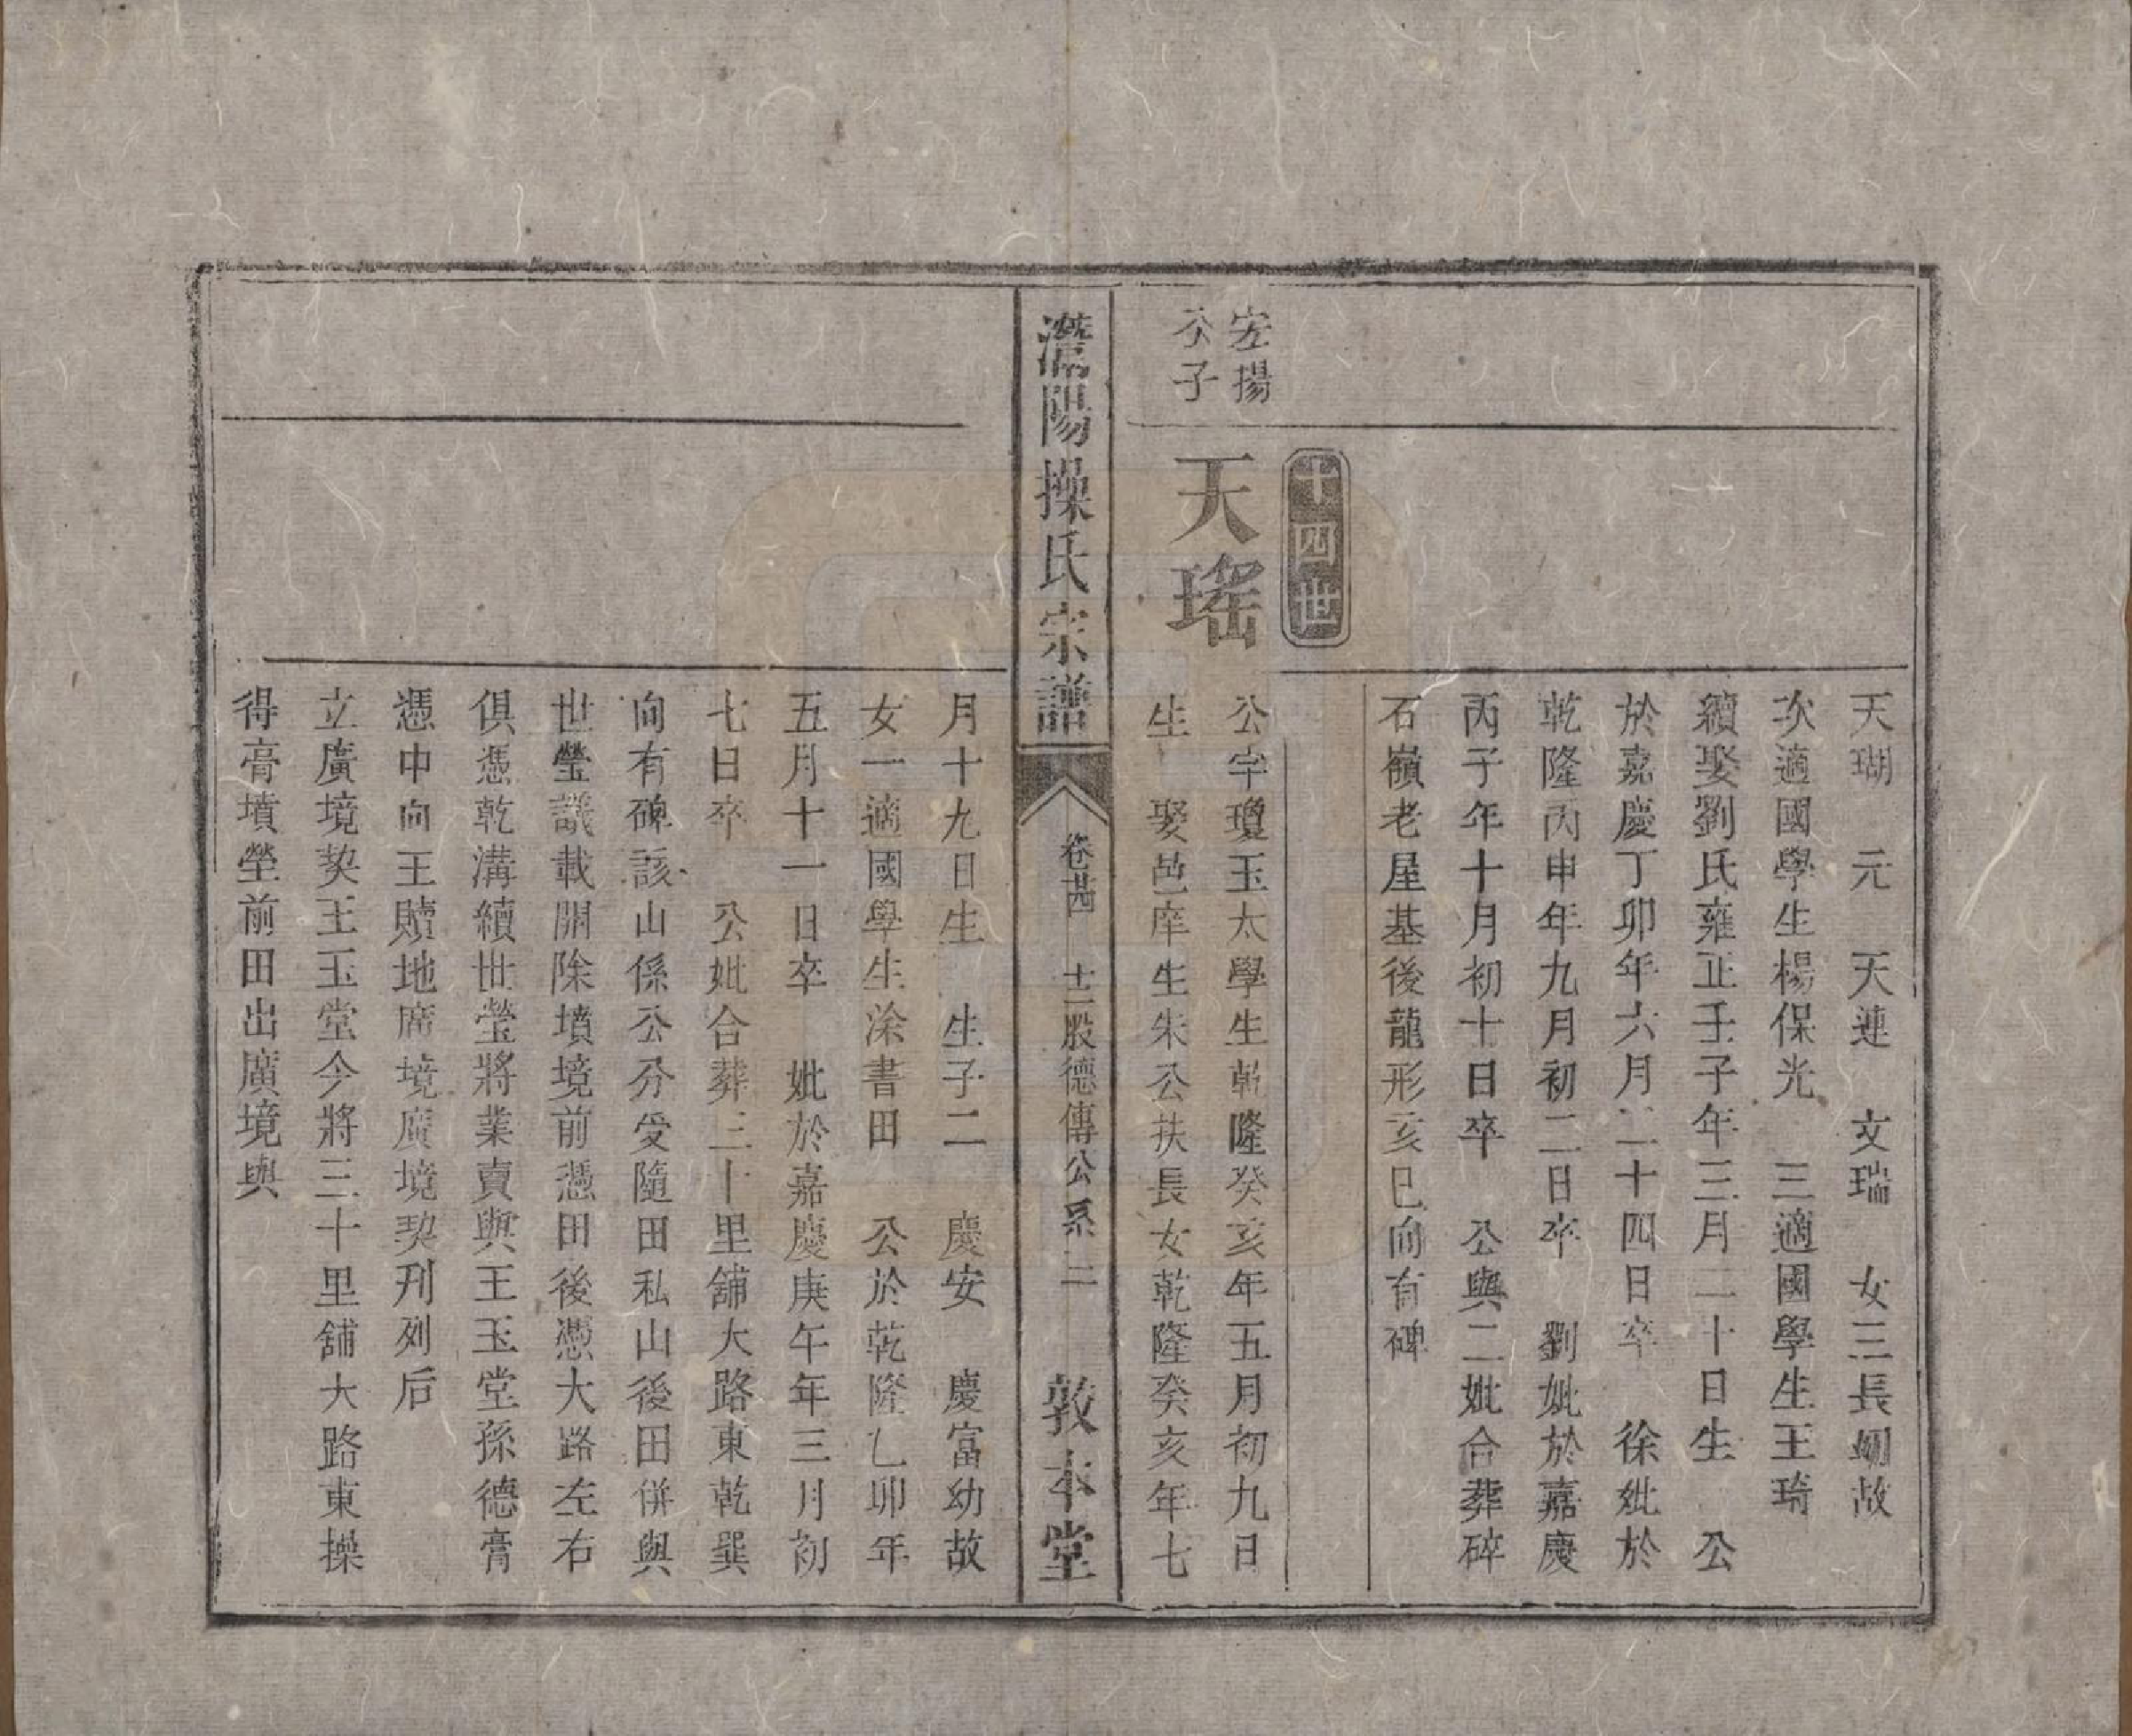 天瑚　元　天連　文瑞　女三長𡛔故
次適國學生楊保光　三適國學生王琦
續娶劉氏雍正壬子年三月二十日生　公
於嘉慶丁卯年六月二十四日卒　徐妣於
乾隆丙申年九月初二日卒　劉妣於嘉慶
丙子年十月初十日卒　公與二妣合葬碎
石嶺老屋基後龍形亥巳向有碑
十四世
宏揚
公子
天瑤
公字瓊玉太學生乾隆癸亥年五月初九日
生　娶邑庠生朱公扶長女乾隆癸亥年七
灊陽操氏宗譜
卷廿四　十二股德傳公系二
敦本堂
月十九日生　生子二　慶安　慶富幼故
女一適國學生涂書田　公於乾隆乙卯年
五月十一日卒　妣於嘉慶庚午年三月初
七日卒　公妣合葬三十里舖大路東乾巽
向有碑該山係公分受隨田私山後田併與
世瑩議載開除墳境前憑田後憑大路左右
俱憑乾溝續世瑩將業賣與王玉堂孫德膏
憑中向王贖地席境廣境契刊列后
立廣境契王玉堂今將三十里舖大路東操
得膏墳塋前田出廣境與